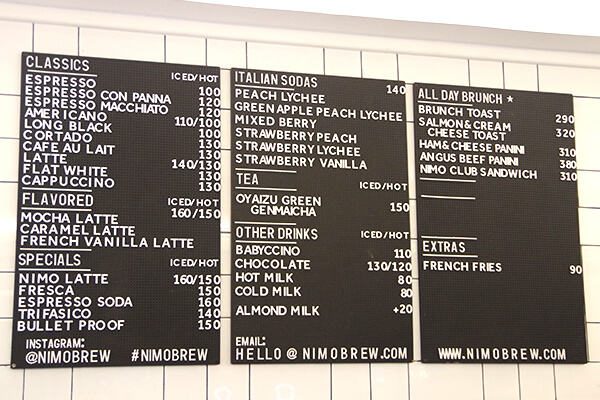 CLASSICS
ICED/HOT
ESPRESSO 100
ESPRESSO CON PANNA 120
ESPRESSO MACCHIATO 120
AMERICANO 110/100
LONG BLACK 100
CORTADO 130
CAFE AU LAIT 130
LATTE 140/130
FLAT WHITE 130
CAPPUCCINO 130
FLAVORED ICED/HOT
MOCHA LATTE 160/150
CARAMEL LATTE
FRENCH VANILLA LATTE
SPECIALS ICED/HOT
NIMO LATTE 160/150
FRESCA 150
ESPRESSO SODA 160
TRIFASICO 140
BULLET PROOF 150
INSTAGRAM:
@NIMOBREW #NIMOBREW
ITALIAN SODAS 140
PEACH LYCHEE
GREEN APPLE PEACH LYCHEE
MIXED BERRY
STRAWBERRY PEACH
STRAWBERRY LYCHEE
STRAWBERRY VANILLA
TEA ICED/HOT
OYAIZU GREEN
GENMAICHA 150
OTHER DRINKS ICED/HOT
BABYCCINO 110
CHOCOLATE 130/120
HOT MILK 80
COLD MILK 80
ALMOND MILK +20
EMAIL:
HELLO @ NIMOBREW.COM
ALL DAY BRUNCH *
BRUNCH TOAST 290
SALMON & CREAM
CHEESE TOAST 320
HAM & CHEESE PANINI 310
ANGUS BEEF PANINI 380
NIMO CLUB SANDWICH 310
EXTRAS
FRENCH FRIES 90
WWW.NIMOBREW.COM